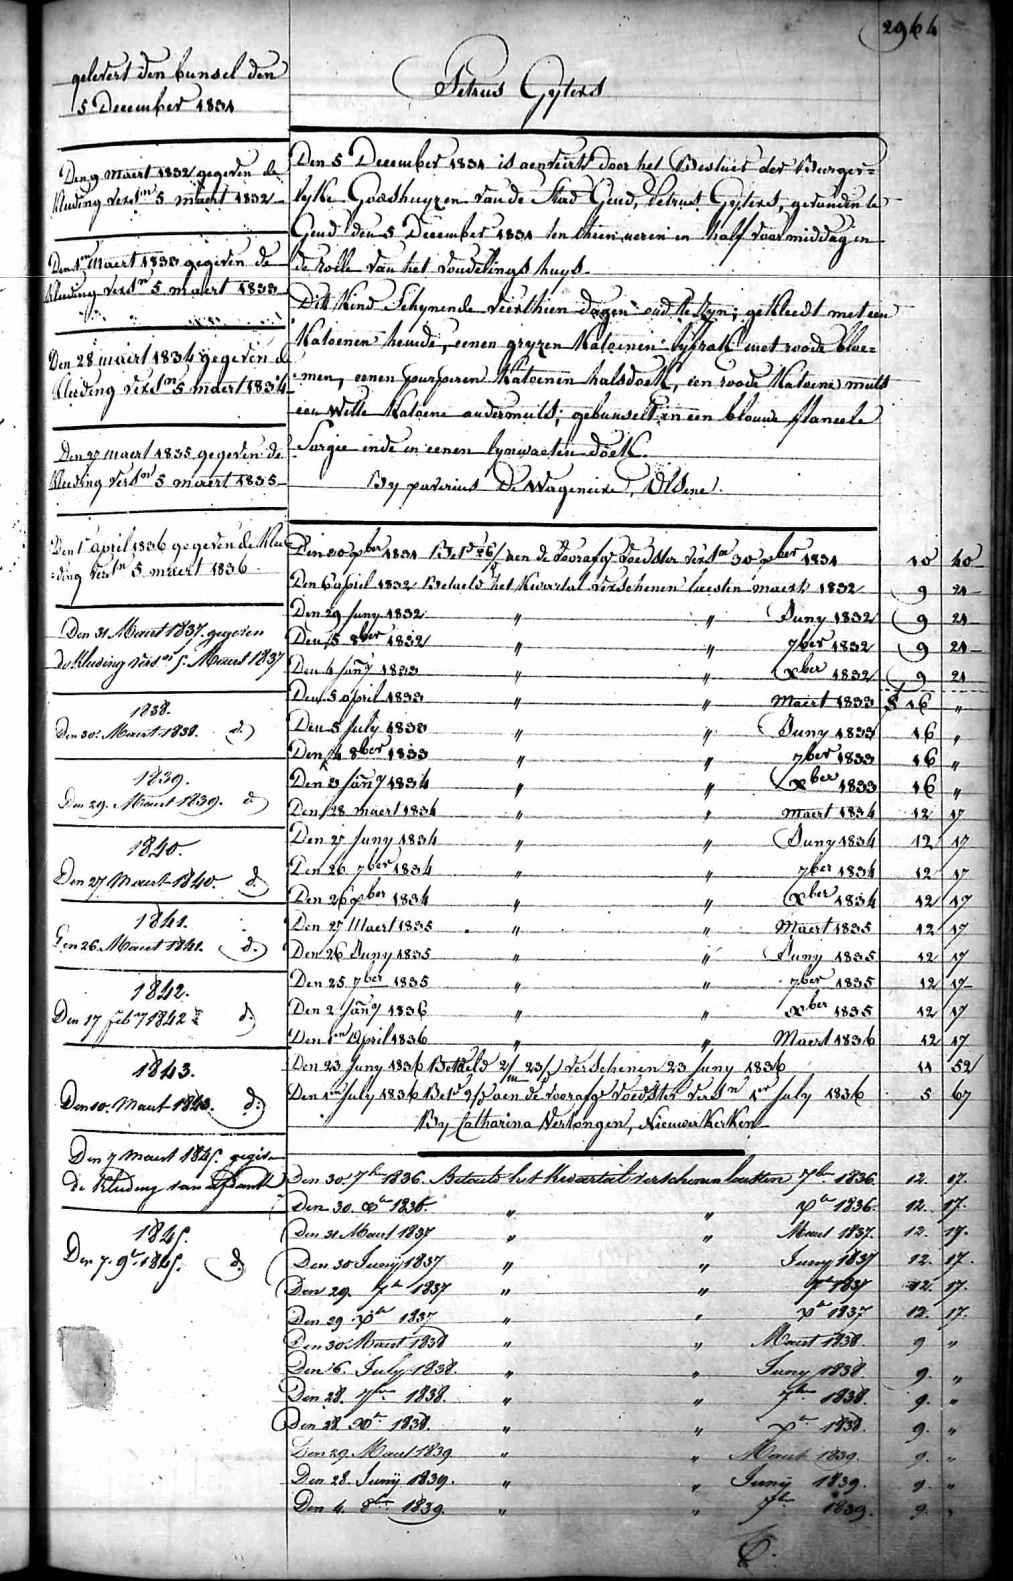 2964
gelevert den bunsel den
5 December 1831
Petrus Gyters
Den 9 maert 1832 gegeven de
kleeding versn 5 maert 1832
Den 1en Maert 1833 gegeven de
kleeding versn 5 maert 1833
Den 28 maert 1834 gegeven de
kleeding versn 5 maert 1834
Den 27 maert 1835 gegeven de
kleeding versn 5 maert 1835
Den 1r april 1836 gegeven de klee
=ding versn 5 maert 1836
Den 31 Maert 1837 gegeven
de kleeding versn 5 Maert 1837
1838.
Den 30. Maert 1838. d.)
1839.
Den 29. Maert 1839. d)
1840.
Den 27 Maert 1840. d.)
1841.
Den 26. Maert 1841. d.)
1842.
Den 17 feby 1842 d.)
1843.
Den 10. Maert 1843. d.)
Den 7 Maert 1845. gegev
de kleeding van
1845.
Den 7. 9r 1845. d)
Den 5 December 1831 is aenveirt door het Besluit der Burger=
lyke Godshuyzen van de Stad Gend, Petrus Gyters, gevonden te
Gend den 5 December 1831 ten thien ueren en half voormiddag in
de rolle van het vondelings huys
Dit Kind schynende veirthien dagen oud te zyn; gekleedt met een
Katoenen hemde, eenen gryzen Katoenen lyfrak met roode bloe=
=men, eenen purperen Katoenen halsdoek, een roode Katoene muts
een witte Katoene ondermuts; gebunselt in een blouwe flaneele
Sargie ende in eenen lynwaeten doek.
By paverius De Wageneire, Olsene.
Den 30 xber 1831 Betd 26/ aen de voorafg voedster versn 30 xber 1831 10 40
Den 6 april 1832 Betaeld het kwartal verschenen laesten maert 1832 9 21
Den 29 Juny 1832 " " Juny 1832 9 21
Den 5 8ber 1832 " " 7ber 1832 9 21
Den 4 Jany 1833 " " xber 1832 9 21
Den 5 april 1833 " " Maert 1833 16 "
Den 5 July 1833 " " Juny 1833 16 "
Den 4 8ber 1833 " " 7ber 1833 16 "
Den 3 Jany 1834 " " xber 1833 16 "
Den 28 maert 1834 " " maert 1834 12 17
Den 27 Juny 1834 " " Juny 1834 12 17
Den 26 7ber 1834 " " 7ber 1834 12 17
Den 26 xber 1834 " " xber 1834 12 17
Den 27 Maert 1835 " " Maert 1835 12 17
Den 26 Juny 1835 " " Juny 1835 12 17
Den 25 7ber 1835 " " 7ber 1835 12 17
Den 2 Jany 1836 " " xber 1835 12 17
Den 1en April 1836 " " Maert 1836 12 17
Den 23 Juny 1836 Betaeld 2/m 23/d verschenen 23 Juny 1836 11 52
Den 1en July 1836 Betd 9/d aen de voorafge voedster versn 1er July 1836 5 67
By Catharina Verlongen, Nieuwerkerken
Den 30. 7br 1836. Betaeld het kwartal verschenen laesten 7br 1836. 12. 17.
Den 30. xbr 1836. " " xbr 1836. 12. 17.
Den 31 Maert 1837 " " Maert 1837. 12. 17.
Den 30 Juny 1837 " " Juny 1837 12. 17.
Den 29. 7br 1837 " " 7br 1837 12. 17.
Den 29. xbr 1837 " " xbr 1837 12. 17.
Den 30 Maert 1838 " " Maert 1838. 9 "
Den 6. July 1838. " " Juny 1838. 9. "
Den 28. 7br 1838. " " 7br 1838. 9. "
Den 28. xbr 1838. " " xbr 1838. 9. "
Den 29. Maert 1839 " " Maert 1839. 9. "
Den 28. Juny 1839. " " Juny 1839. 9. "
Den 4. 8br 1839. " " 7br 1839. 9. "